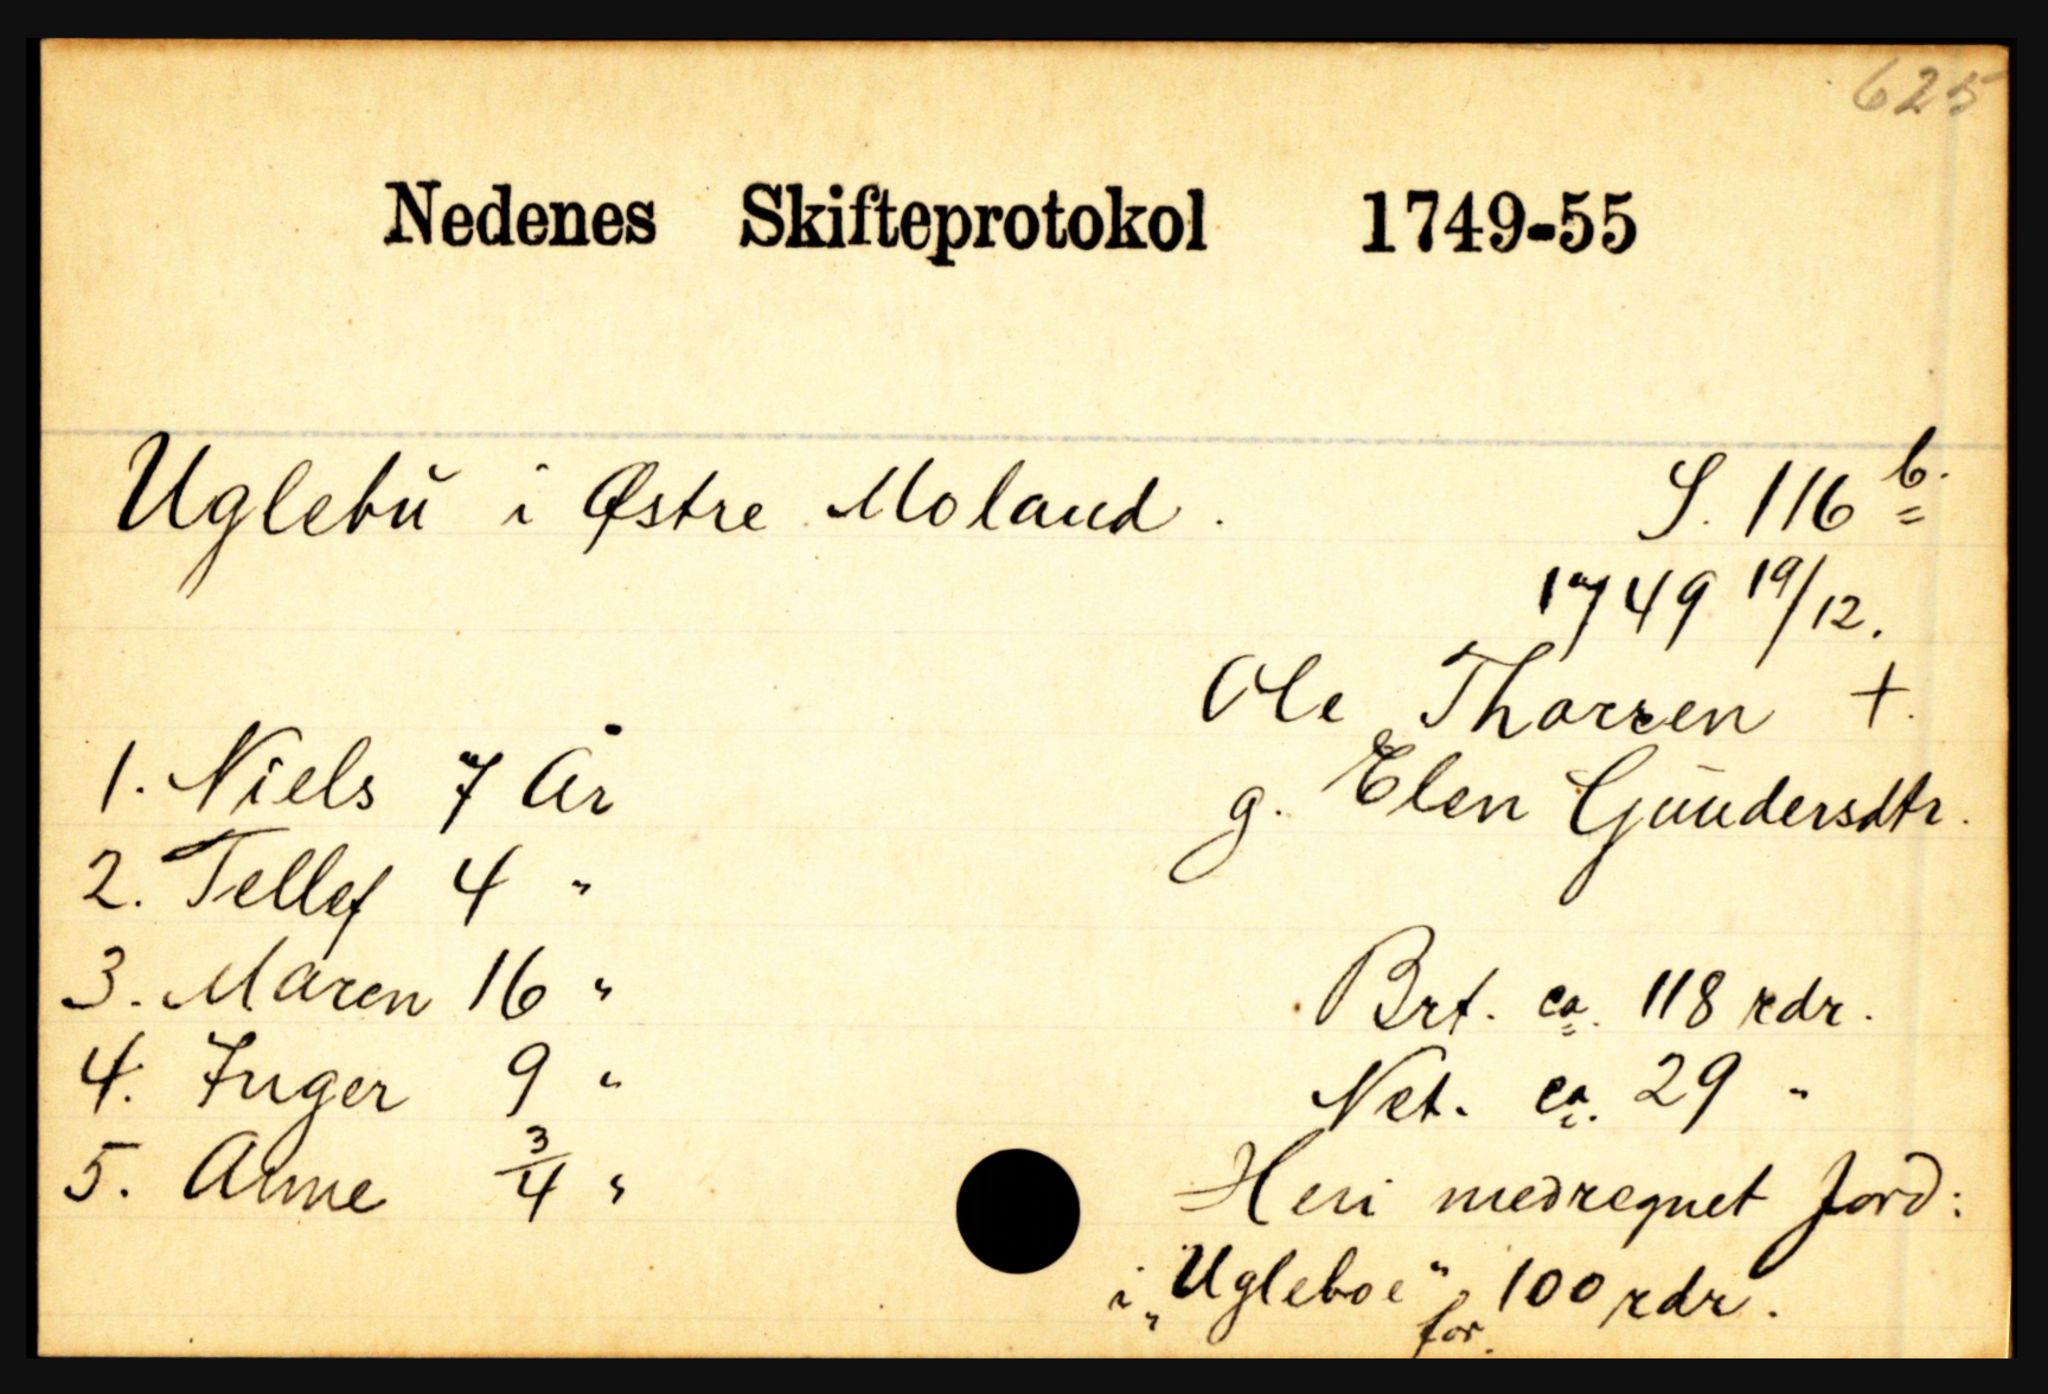 625
Nedenes Skifteprotokol 1749-55
Uglebŭ i Østre Moland. S. 116 b.
1749 19/12.
Ole Thorsen +.
g. Elen Gŭndersdtr.
1. Niels 7 År
2. Tellef 4 "
3. Maren 16 "
4. Inger 9 "
5. Anne 3/4 "
Brt. ca. 118 rdr.
Net. ca. 29 "
Heri medregnet Jord:
i „Ugleboe" for 100 rdr.